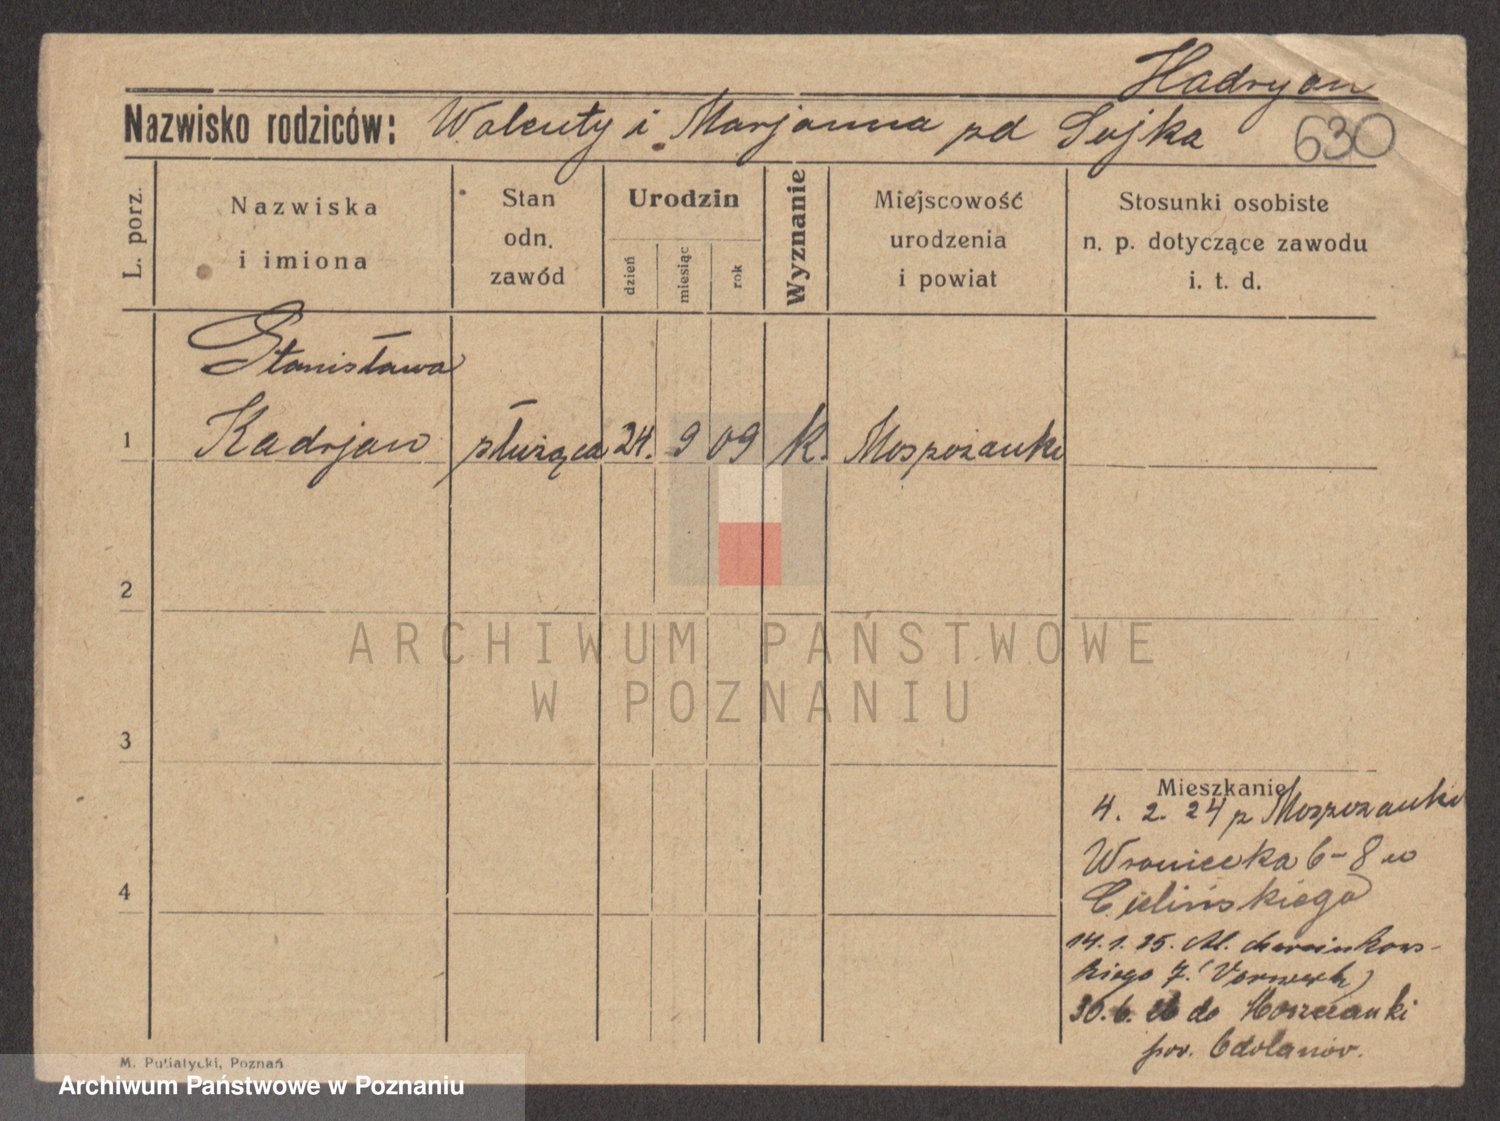 Hadryan
Nazwisko rodziców: Walenty i Marjanna pd Sujka
630
L. porz.
Nazwiska
i imiona
Stan
odn.
zawód
Urodzin
dzień
miesiąc
rok
Wyznanie
Miejscowość
urodzenia
i powiat
Stosunki osobiste
n. p. dotyczące zawodu
i. t. d.
Stanisława
1 Kadrjan służąca 24. 9 09 k. Moszczanki
2
3
4
ARCHIWUM PAŃSTWOWE
W POZNANIU
Mieszkanie
4. 2. 24 z Moszczanki
Wroniecka 6-8 u
Cielińskiego
14.1.25. Al. Marcinkows-
kiego 7.
30.6. do Moszczanki
pow. Odolanów.
M. Putiatycki, Poznań
Archiwum Państwowe w Poznaniu